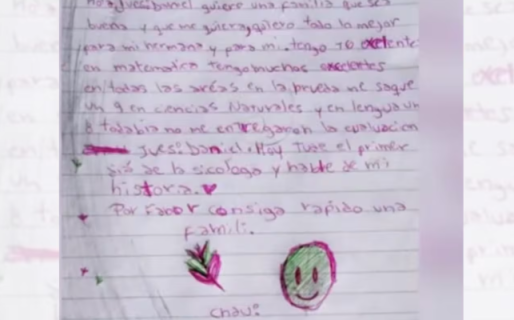 Daniel quiere una familia que sea
buena y que me quiera, quiero todo lo mejor
para mi hermana y para mi. tengo 10 exelente
en matematica tengo muchos exeletes
en todas las areas en la prueba me saque
un 9 en ciencias Naturales y en lengua un
8 todabia no me entregaron la evaluacion
Juez: Daniel. Hoy Tube el primer
dia de la sicologa y hable de mi
historia.
Por Favor consiga rapido una
famili.
chau: